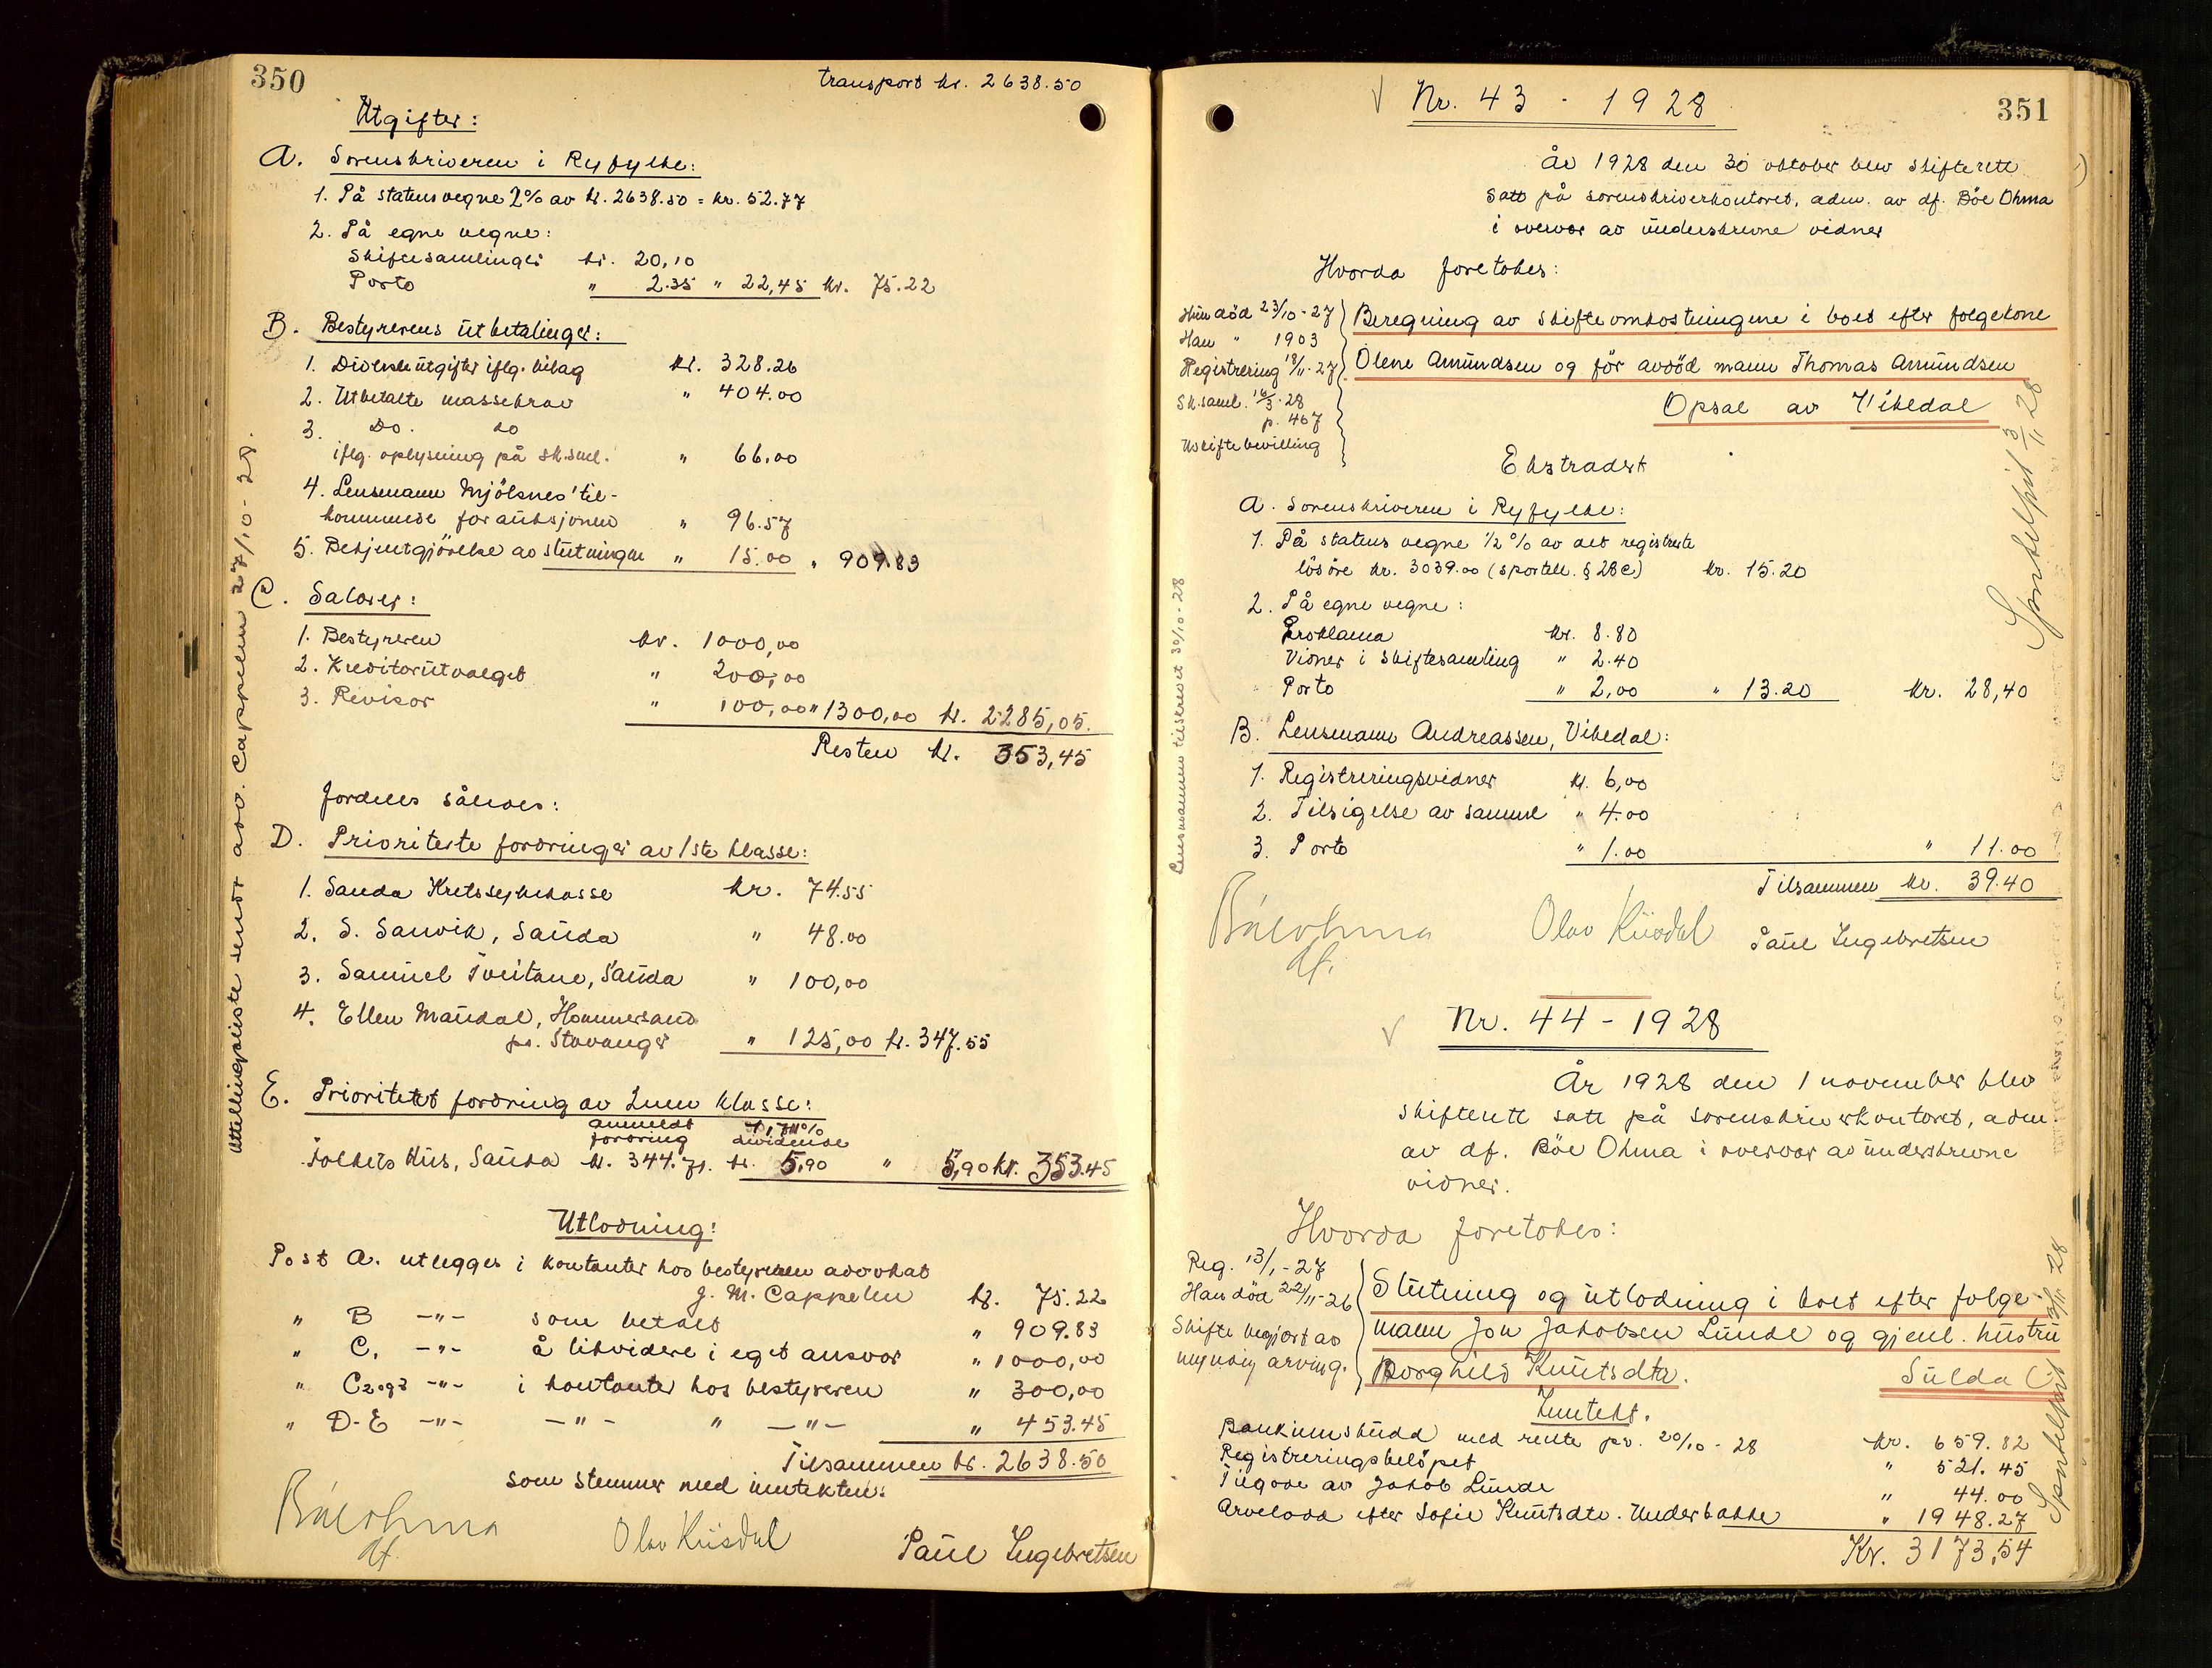 350
transport kr. 2638.50
Utgifter:
A. Sorenskriveren i Ryfylke:
1. På statens vegne 2% av kr. 2638.50 = kr. 52.77
2. På egne vegne:
Skiftesamlinger kr. 20,10
Porto " 2.35 " 22,45 kr. 75.22
B. Bestyrerens utbetalinger:
1. Diverse utgifter iflg. bilag kr. 328.26
2. Utbetalte massekrav " 404.00
3. Do. do
iflg. oplysning på sk.saml. " 66.00
4. Lensmann Mjölsnes' til-
kommende for auksjonen " 96.57
5. Bekjentgjörelse av slutningen " 15.00 " 909.83
C. Salærer:
1. Bestyreren kr. 1000,00
2. Kreditorutvalget " 200,00
3. Revisor " 100,00 " 1300,00 kr. 2285,05.
Resten kr. 353,45
fordeles således:
D. Prioriterte fordringer av 1ste klasse:
1. Sauda Kretssykekasse kr. 74.55
2. S. Sandvik, Sauda " 48.00
3. Samuel Tveitane, Sauda " 100,00
4. Ellen Maudal, Hommersand
pr. Stavanger " 125,00 kr. 347.55
E. Prioritet fordring av 2nen klasse:
anmeldt 1,711%
fordring dividende
Folkets Hus, Sauda kr. 344.71. kr. 5,90 " 5,90 kr. 353.45
Utlodning:
Post A. utlegges i kontanter hos bestyreren advokat
J. M. Cappelen kr. 75.22
" B -"- som betalt " 909.83
" C1 -"- å likvidere i eget ansvar " 1000,00
" C2 og 3 -"- i kontanter hos bestyreren " 300,00
" D-E -"- -"- " -"- " 453.45
Tilsammen kr. 2638.50
som stemmer med inntekten.
Báeohma Olav Küsdal Paul Ingebretsen
df.
Utstellingsliste sendt adv. Cappelen 27/10-28.
351
Nr. 43 - 1928
År 1928 den 30 oktober blev skifterett
satt på sorenskriverkontoret, adm. av df. Böe Ohma
i overvær av underskrevne vidner
Hvorda foretokes:
Hun död 23/10-27
Han " 1903
Registrering 18/11-27
Sk.saml. 16/3-28
p. 467
Uskiftebevilling
Beregning av skifteomkostningene i boet efter folgekone
Olene Amundsen og för avdöd mann Thomas Amundsen
Opsal av Vikedal
Ekstradert
A. Sorenskriveren i Ryfylke:
1. På statens vegne 1/2 % av det registrerte
lösöre kr. 3039.00 (sportell. § 28c) kr. 15.20
2. På egne vegne:
Proklama kr. 8.80
Vidner i skiftesamling " 2.40
Porto " 2,00 " 13.20 kr. 28,40
B. Lensmann Andreassen, Vikedal:
1. Registreringsvidner kr. 6,00
2. Tilsigelse av samml " 4.00
3. Porto " 1.00 " 11.00
Tilsammen kr. 39.40
Báeohma Olav Küsdal Paul Ingebretsen
df.
Lensmannen tilskrevet 30/10-28
Sportelført 3/11 28
Nr. 44 - 1928
År 1928 den 1 november blev
skifterett satt på sorenskriverkontoret, adm.
av df. Böe Ohma i overvær av underskrevne
vidner.
Hvorda foretokes:
Reg. 13/1-27
Han död 22/11-26
Skifte begjært av
myndig arving.
Slutning og utlodning i boet efter folge
mann Jon Jakobsen Lunde og gjenl. hustru
Borghild Knutsdtr. Sulda
Inntekt.
Bankinnskudd med rente pr. 20/10-28 kr. 659.82
Registreringsbelöpet " 521.45
Tilgode av Jakob Lunde " 44.00
Arvelodd efter Sofie Knutsdtr. Underbakke " 1948.27
Kr. 3173,54